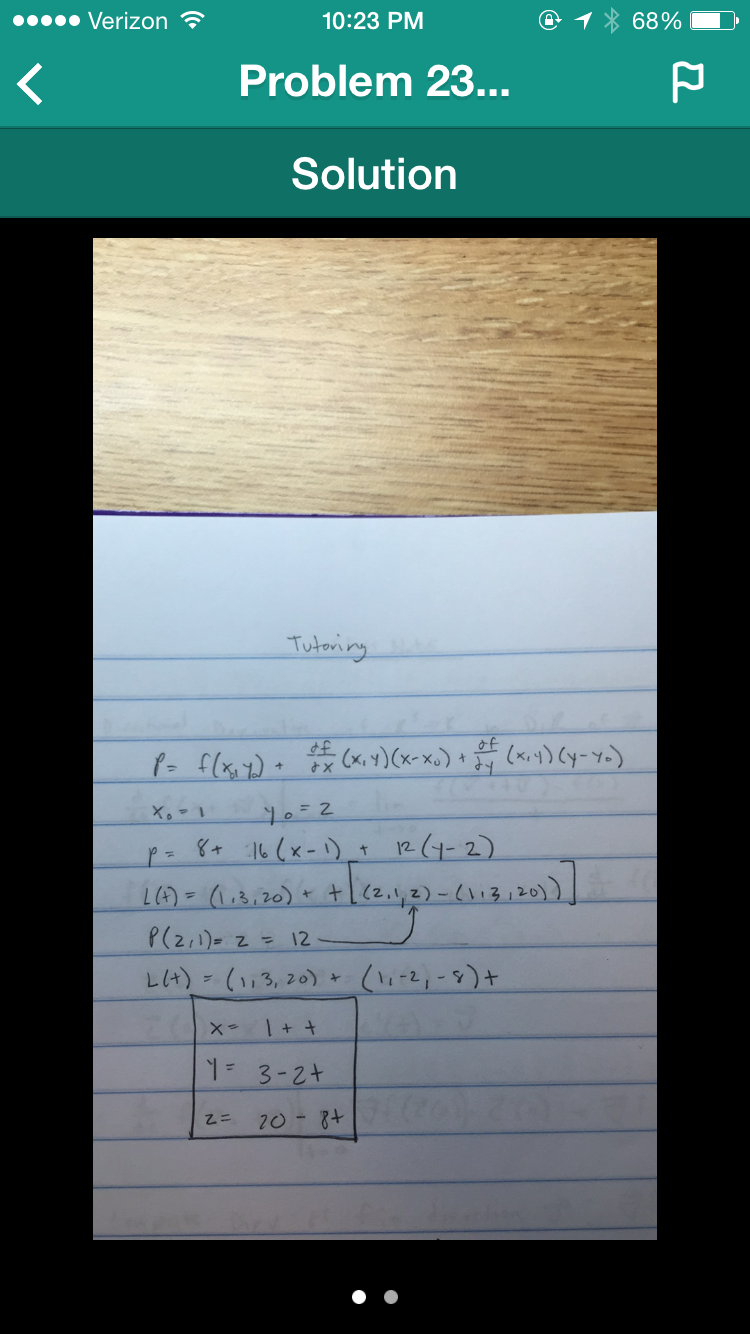 Verizon 10:23 PM 68%
Problem 23...
Solution
Tutoring
P= f(x₀,y₀) + ∂f/∂x (x,y)(x-x₀) + ∂f/∂y (x,y)(y-y₀)
x₀ = 1 y₀ = 2
p = 8+ 16(x-1) + 12(y-2)
L(t) = (1,3,20) + t[(2,1,z)-(1,3,20))]
P(2,1)= z = 12
L(t) = (1,3,20) + (1,-2,-8)t
x= 1+t
y= 3-2t
z= 20-8t